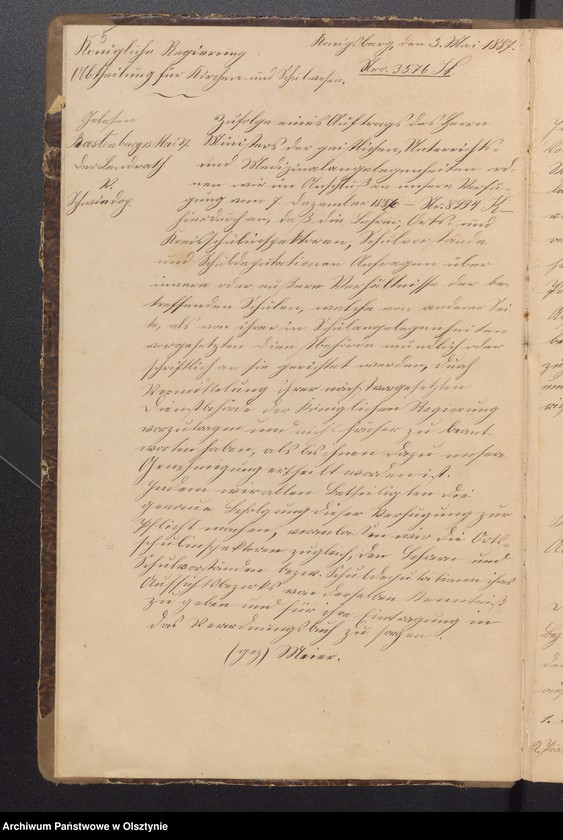 5
Königliche Regierung
Abtheilung für Kirchen- und Schulwesen.
Königsberg, den 3. Mai 1887.
Nro. 3576 Sch
Gelesen
Rastenburg, Mai 87.
Der Landrath
Zufolge eines Auftrags des Herrn
Ministers der geistlichen, Unterrichts-
und Medizinalangelegenheiten ord-
nen wir im Anschluß an unsere Verfü-
gung vom 7. Dezember 1886 – Nr. 8994
hierdurch an, daß die Lehrer, Orts- und
Kreisschulinspektoren, Schulvorstände
und Schuldeputationen Anfragen über
innere oder äußere Verhältnisse der be-
treffenden Schulen, welche von anderer Sei-
te, als von ihrer in Schulangelegenheiten
vorgesetzten Dienstbehörde mündlich oder
schriftlich an sie gerichtet werden, durch
Vermittelung ihrer nächstvorgesetzten
Dienstbehörde der Königlichen Regierung
vorzutragen und nicht früher zu beant-
worten haben, als bis ihnen dazu unsere
Genehmigung ertheilt worden ist.
Indem wir allen Betheiligten die
genaue Befolgung dieser Verfügung zur
Pflicht machen, veranlassen wir die Orts-
schulinspektoren zugleich, den Lehrern und
Schulvorständen bezw. Schuldeputationen ihres
Aufsichtsbezirks von derselben Kenntniß
zu geben und für ihre Eintragung in
das Verordnungsbuch zu sorgen.
(gez) Meier.
Archiwum Państwowe w Olsztynie